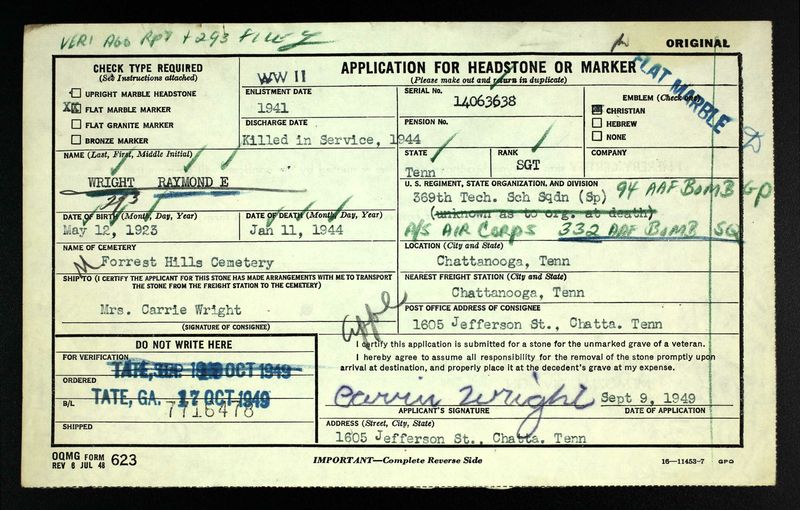 VERI AGO Rpt + 293 File
ORIGINAL
CHECK TYPE REQUIRED
(See Instructions attached)
UPRIGHT MARBLE HEADSTONE
XX FLAT MARBLE MARKER
FLAT GRANITE MARKER
BRONZE MARKER
WW II
ENLISTMENT DATE
1941
DISCHARGE DATE
Killed in Service, 1944
APPLICATION FOR HEADSTONE OR MARKER
(Please make out and return in duplicate)
SERIAL No.
14063638
PENSION No.
EMBLEM (Check one)
CHRISTIAN
HEBREW
NONE
FLAT MARBLE
NAME (Last, First, Middle Initial)
WRIGHT RAYMOND E
293
STATE
Tenn
RANK
SGT
COMPANY
U. S. REGIMENT, STATE ORGANIZATION, AND DIVISION
369th Tech. Sch Sqdn (Sp) 94 AAF BOMB GP
(unknown as to org. at death)
A/S AIR CORPS 332 AAF BOMB SQ
DATE OF BIRTH (Month, Day, Year)
May 12, 1923
DATE OF DEATH (Month, Day, Year)
Jan 11, 1944
NAME OF CEMETERY
Forrest Hills Cemetery
LOCATION (City and State)
Chattanooga, Tenn
SHIP TO (I CERTIFY THE APPLICANT FOR THIS STONE HAS MADE ARRANGEMENTS WITH ME TO TRANSPORT
THE STONE FROM THE FREIGHT STATION TO THE CEMETERY)
Mrs. Carrie Wright
(SIGNATURE OF CONSIGNEE)
NEAREST FREIGHT STATION (City and State)
Chattanooga, Tenn
POST OFFICE ADDRESS OF CONSIGNEE
1605 Jefferson St., Chatta. Tenn
appl
DO NOT WRITE HERE
FOR VERIFICATION
OCT 1949
ORDERED
TATE, GA. 17 OCT 1949
B/L
7716478
SHIPPED
I certify this application is submitted for a stone for the unmarked grave of a veteran.
I hereby agree to assume all responsibility for the removal of the stone promptly upon
arrival at destination, and properly place it at the decedent's grave at my expense.
Carrin Wright Sept 9, 1949
APPLICANT'S SIGNATURE DATE OF APPLICATION
ADDRESS (Street, City, State)
1605 Jefferson St., Chatta. Tenn
OQMG FORM
REV 6 JUL 48 623
IMPORTANT—Complete Reverse Side
16—11453-7 GPO